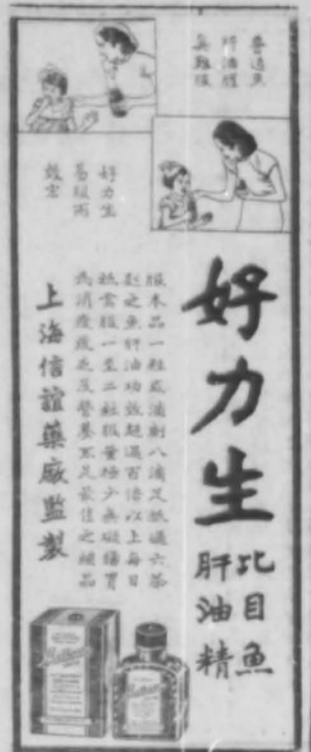 普通魚
肝油腥
臭難服
好力生
易服而
效宏
好力生
比目魚
肝油精
服本品一粒或滴劑八滴足抵過六茶
匙之魚肝油功效超過百倍以上每日
祇需服一至二粒服量極少無礙腸胃
為消瘦疲乏及營養不足最佳之補品
上海信誼藥廠監製